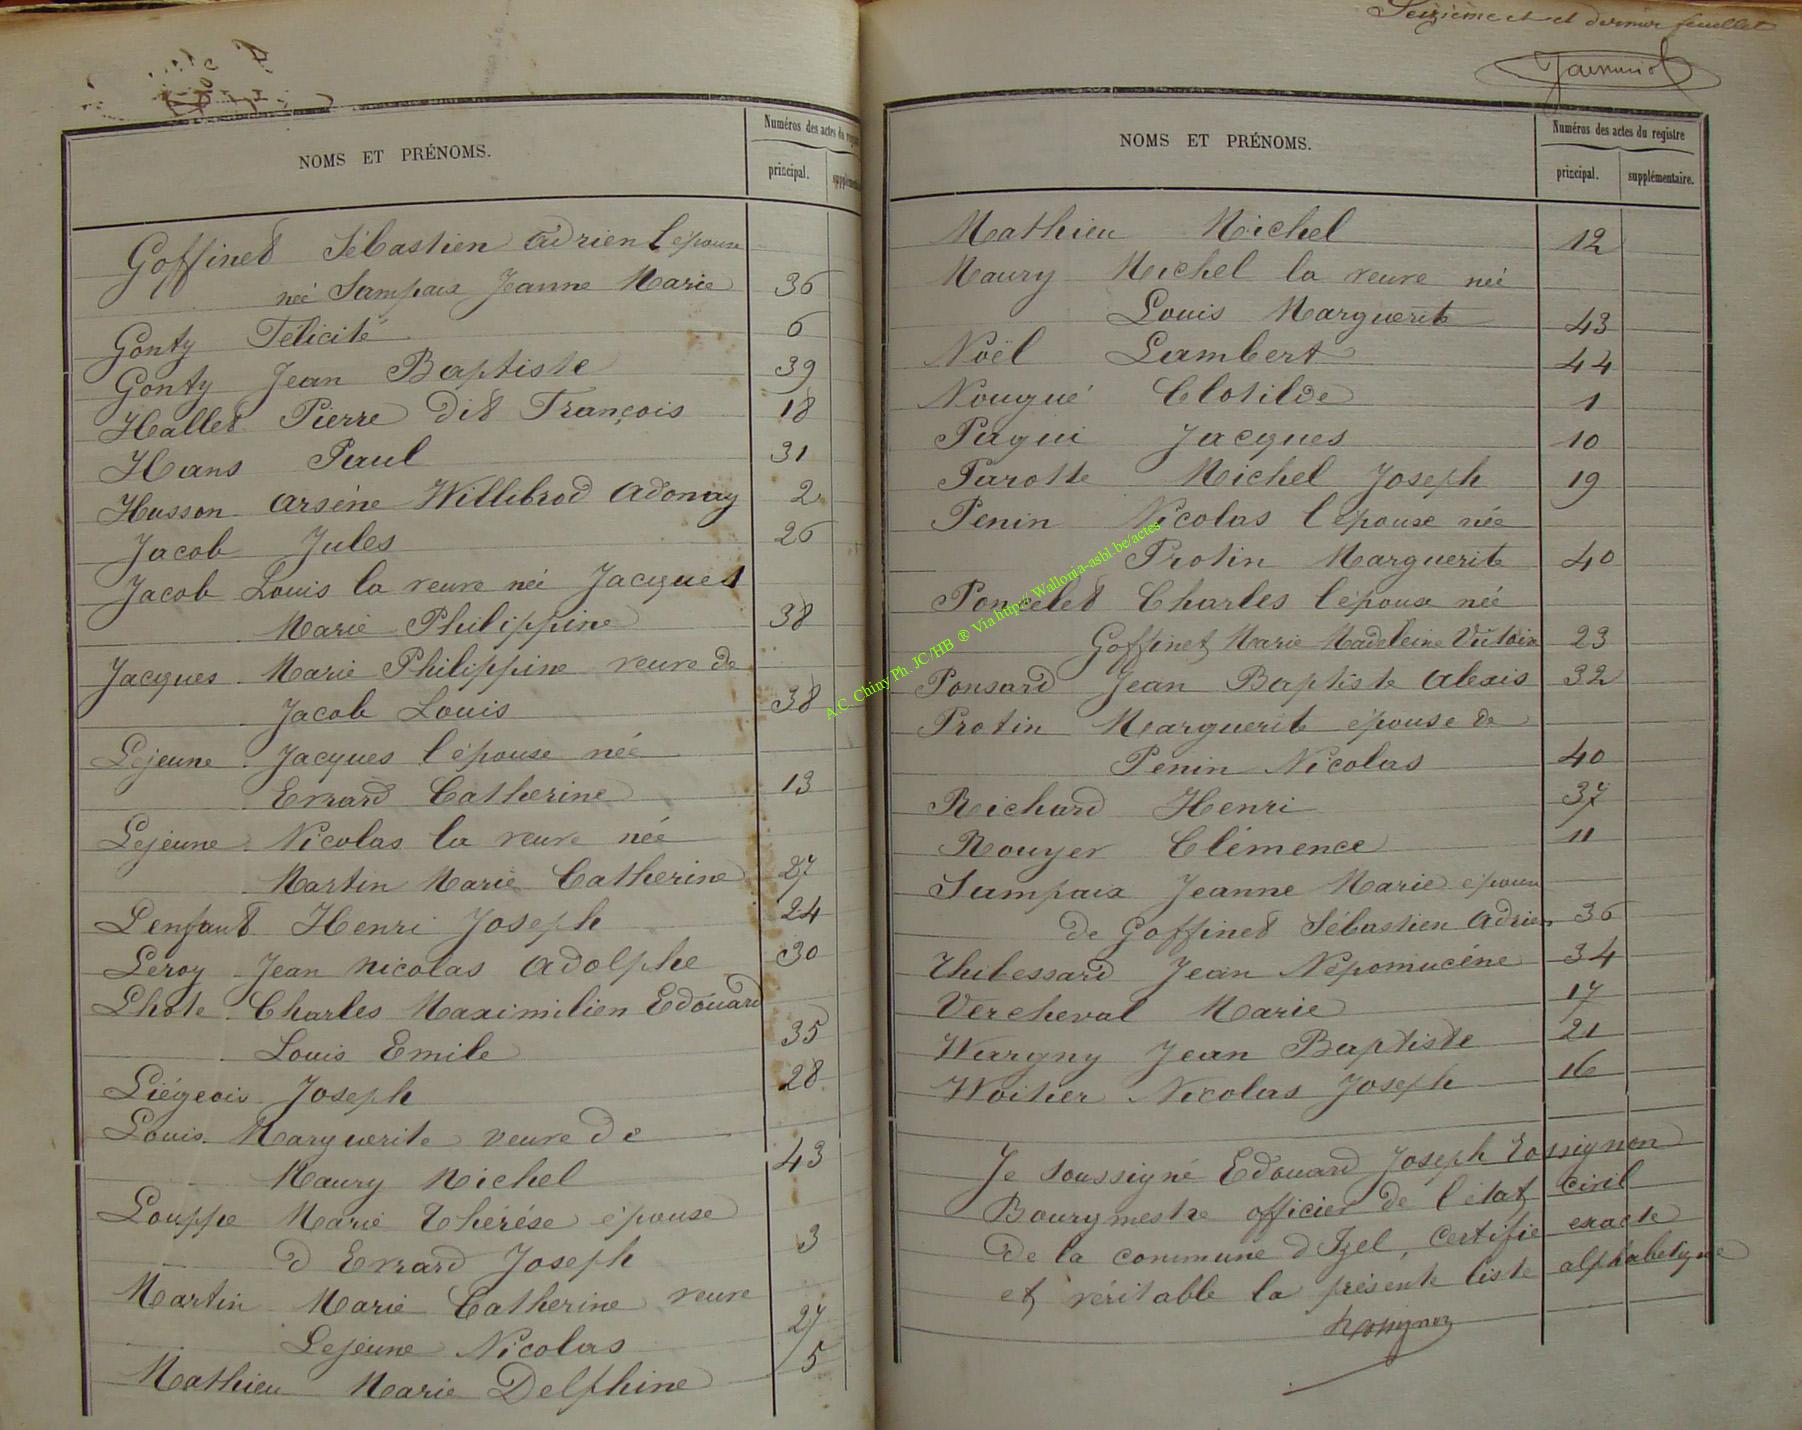 NOMS ET PRÉNOMS.
Numéros des actes du
principal.
Goffinet Sébastien Adrien l'épouse
née Sampaix Jeanne Marie 36
Gonty Félicité 6
Gonty Jean Baptiste 39
Hallet Pierre dit François 18
Hans Paul 31
Husson Arsène Willibrod Adonay 2
Jacob Jules 26
Jacob Louis la veuve née Jacques
Marie Philippine 38
Jacques Marie Philippine veuve de
Jacob Louis 38
Lejeune Jacques l'épouse née
Errard Catherine 13
Lejeune Nicolas la veuve née
Martin Marie Catherine 27
Lenfant Henri Joseph 24
Leroy Jean Nicolas Adolphe 30
Lhote Charles Maximilien Edouard
Louis Emile 35
Liégeois Joseph 28
Louis Marguerite veuve de
Maury Michel 43
Louppe Marie Thérèse épouse
d'Errard Joseph 3
Martin Marie Catherine veuve
Lejeune Nicolas 27
Mathieu Marie Delphine 5
Seizième et et dernier feuillet
NOMS ET PRÉNOMS.
Numéros des actes du registre
principal. supplémentaire.
Mathieu Michel 12
Maury Michel la veuve née
Louis Marguerite 43
Noël Lambert 44
Nougué Clotilde 1
Pagui Jacques 10
Parotte Michel Joseph 19
Penin Nicolas l'épouse née
Protin Marguerite 40
Poncelet Charles l'épouse née
Goffinet Marie Madeleine Victoire 23
Ponsard Jean Baptiste Alexis 32
Protin Marguerite épouse de
Penin Nicolas 40
Richard Henri 37
Rouyer Clémence 11
Sampaix Jeanne Marie épouse
de Goffinet Sébastien Adrien 36
Thibessard Jean Népomucène 34
Vercheval Marie 17
Wargny Jean Baptiste 21
Woitier Nicolas Joseph 16
Je soussigné Edouard Joseph Rossignon
Bourgmestre officier de l'état civil
de la commune d'Izel, certifie exacte
et véritable la présente liste alphabétique
Rossignon
A.C. Chiny Ph. JC/HB ® Via http://Wallonia-asbl.be/actes